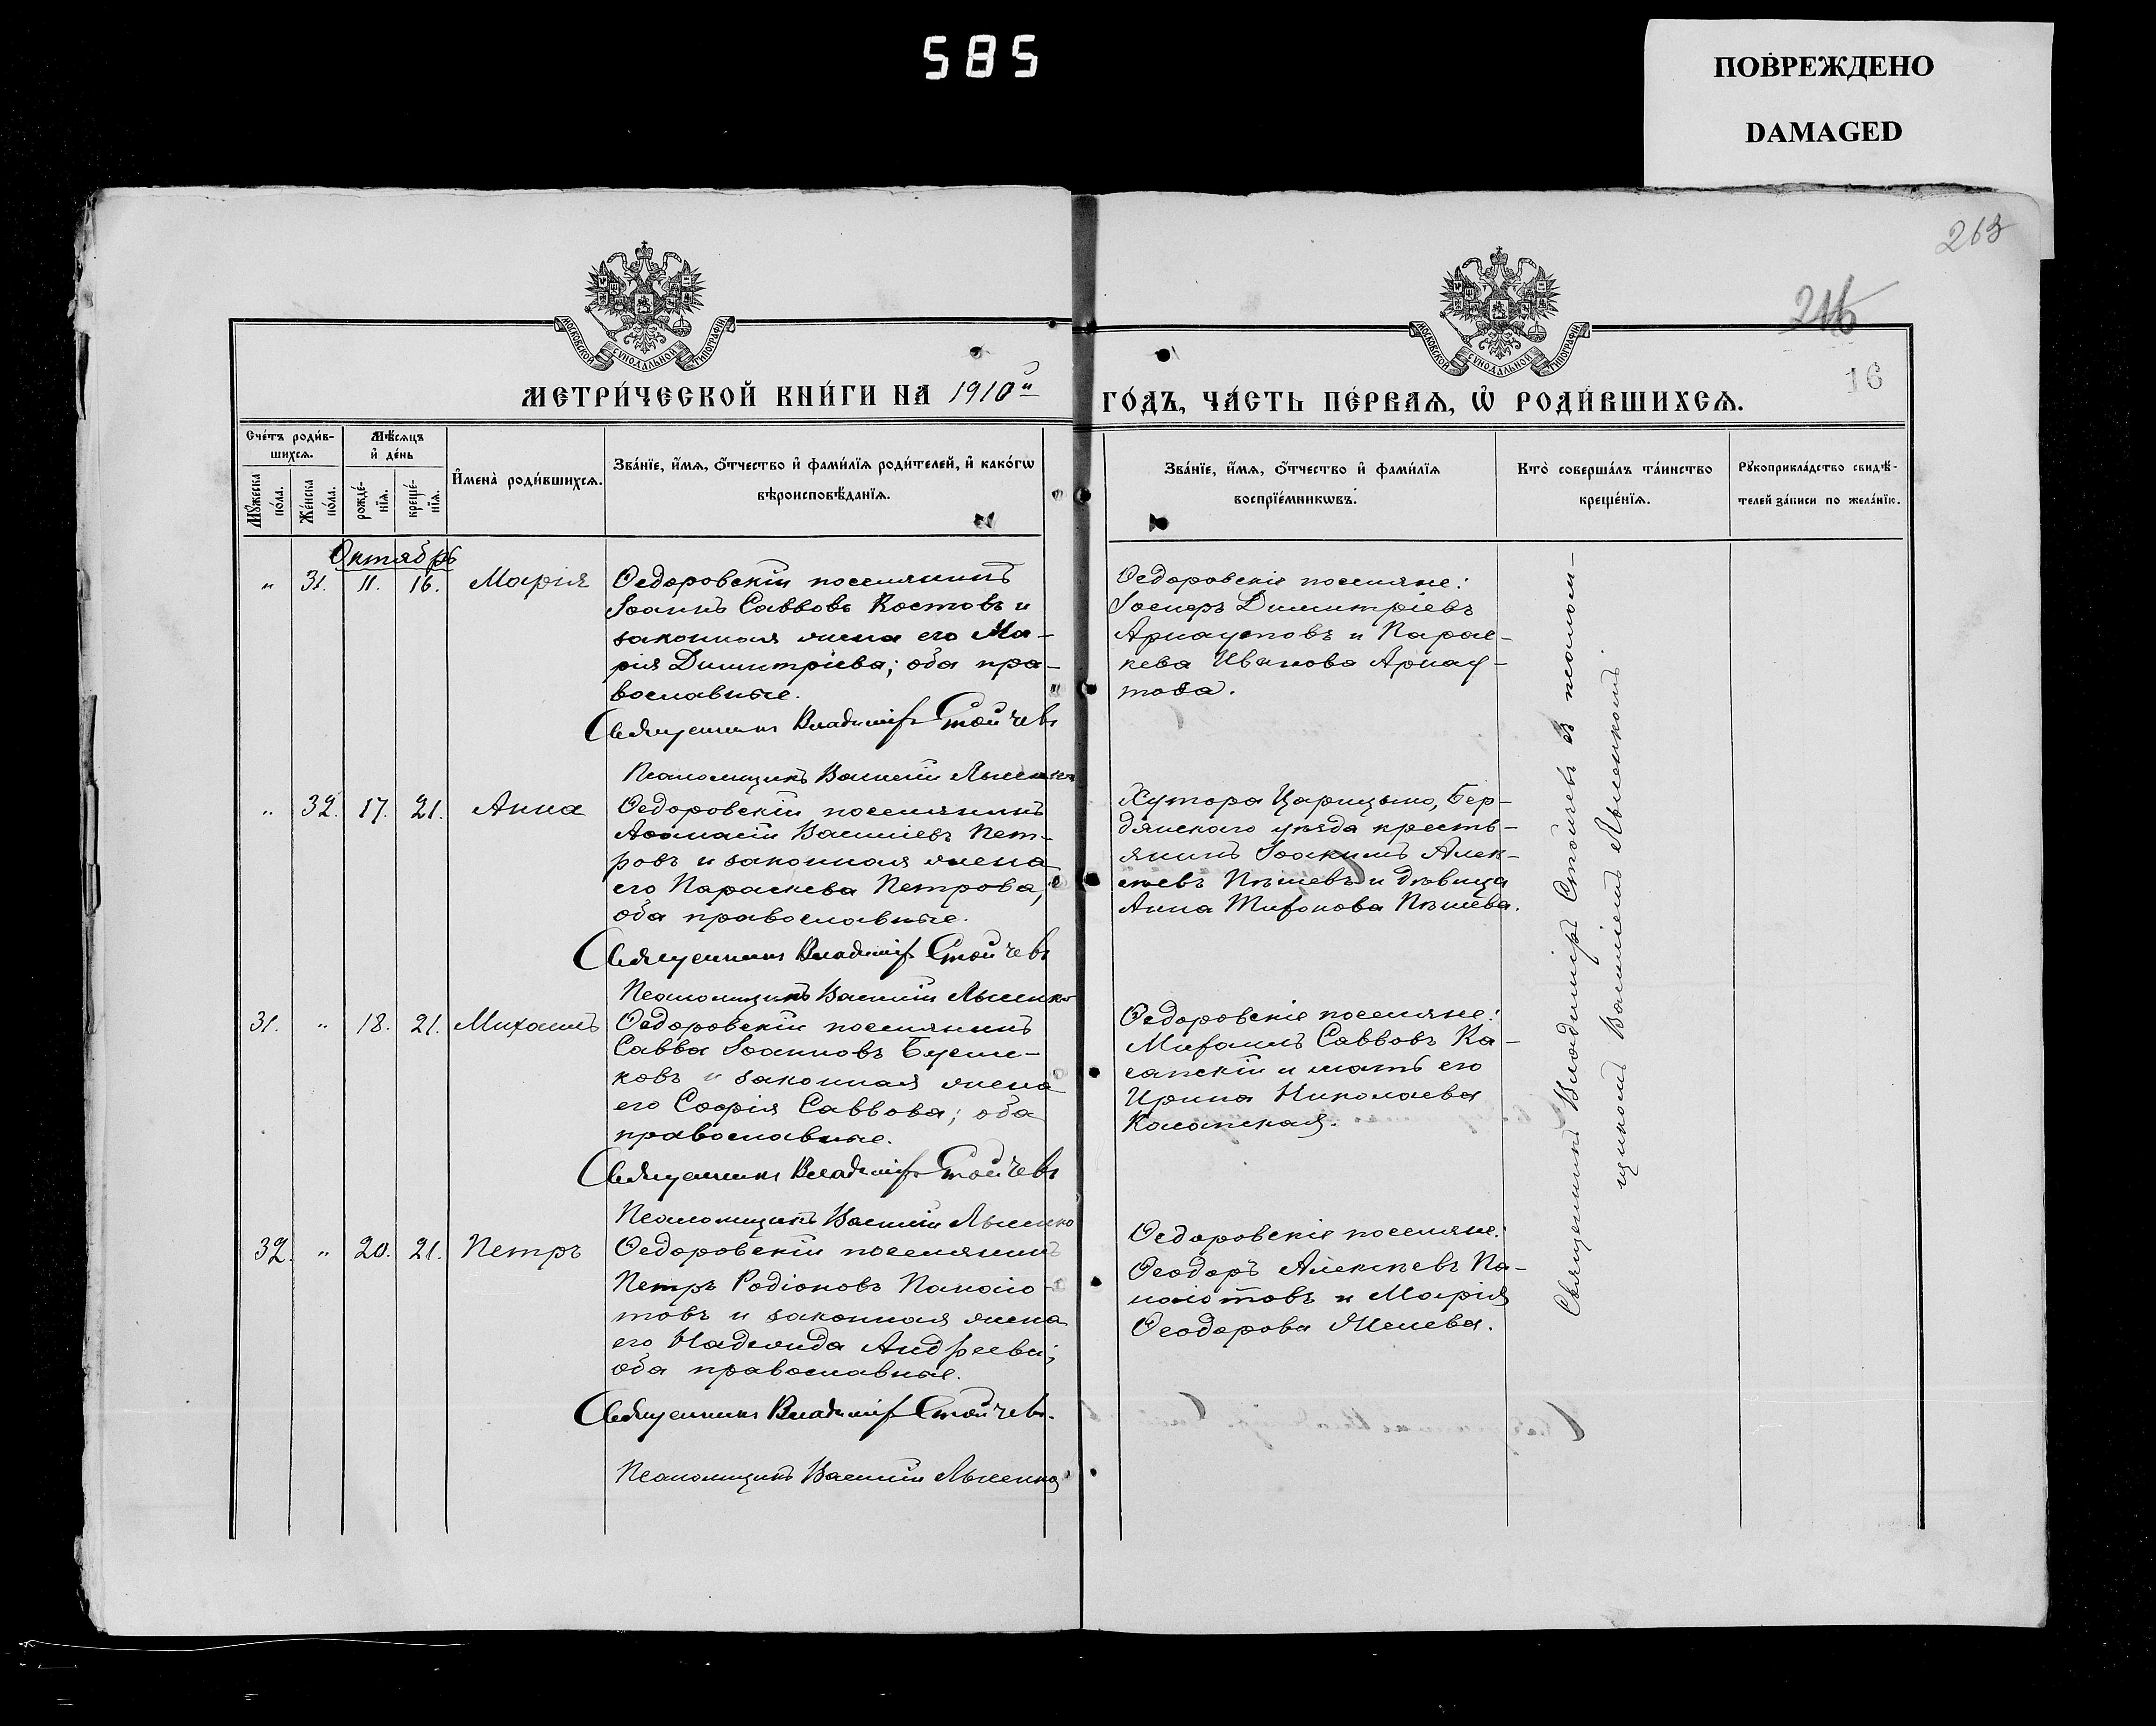 585
ПОВРЕЖДЕНО
DAMAGED
263
216
16
МОСКОВСКОЙ СѴНОДАЛЬНОЙ ТИПОГРАФІИ
МОСКОВСКОЙ СѴНОДАЛЬНОЙ ТИПОГРАФІИ
МЕТРИ́ЧЕСКОЙ КНИ́ГИ НА 1910й
ГО́ДЪ, ЧА́СТЬ ПЕ́РВАѦ, Ѡ҆ РОДИ́ВШИХСѦ.
Сче́тъ роди́в-
шихсѧ.
Мꙋ́жеска по́ла.
Же́нска по́ла.
Мѣ́сѧцъ
и҆ де́нь
рожде́-
нїѧ.
креще́-
нїѧ.
И҆мена̀ роди́вшихсѧ.
Зва́нїе, и҆́мѧ, ѻ҆́тчество и҆ фами́лїѧ роди́телей, и҆ како́гѡ
вѣроисповѣ́данїѧ.
Зва́нїе, и҆́мѧ, ѻ҆́тчество и҆ фами́лїѧ
воспрїе́мникѡвъ.
Кто̀ соверша́лъ та́инство
креще́нїѧ.
Рꙋкоприкла́дство свидѣ́-
телей за́писи по жела́нїю.
Октябрь
„ 31. 11. 16. Марія
Ѳедоровскій поселянинъ
Іоаннъ Саввовъ Костовъ и
законная жена его Ма-
рія Димитріева; оба пра-
вославные.
Священникъ Владиміръ Стойчевъ
Псаломщикъ Василій Лысенко
Ѳедоровскіе поселяне:
Іосифъ Димитріевъ
Арнаутовъ и Парас-
кева Иванова Арнау-
това.
„ 32. 17. 21. Анна
Ѳедоровскій поселянинъ
Аѳанасій Василіевъ Пет-
ровъ и законная жена
его Параскева Петрова,
оба православные.
Священникъ Владиміръ Стойчевъ
Псаломщикъ Василій Лысенко
Хутора Царицыно, Бер-
дянскаго уѣзда кресть-
янинъ Іоакимъ Алек-
сѣевъ Пѣшевъ и дѣвица
Анна Тихонова Пѣшева.
31. „ 18. 21. Михаилъ
Ѳедоровскій поселянинъ
Савва Іоанновъ
и законная жена
его Софія Саввова; оба
православные.
Священникъ Владиміръ Стойчевъ
Псаломщикъ Василій Лысенко
Ѳедоровскіе поселяне:
Михаилъ Саввовъ Ка-
сапскій и мать его
Ирина Николаева
Касапская.
32. „ 20. 21. Петръ
Ѳедоровскій поселянинъ
Петръ Родіоновъ Панаіо-
товъ и законная жена
его Надежда Андреева;
оба православные.
Священникъ Владиміръ Стойчевъ.
Псаломщикъ Василій Лысенко
Ѳедоровскіе поселяне:
Ѳеодоръ Алексѣевъ Па-
наіотовъ и Марія
Ѳеодорова Желева.
Священникъ Владиміръ Стойчевъ съ псалом-
щикомъ Василіемъ Лысенкомъ.